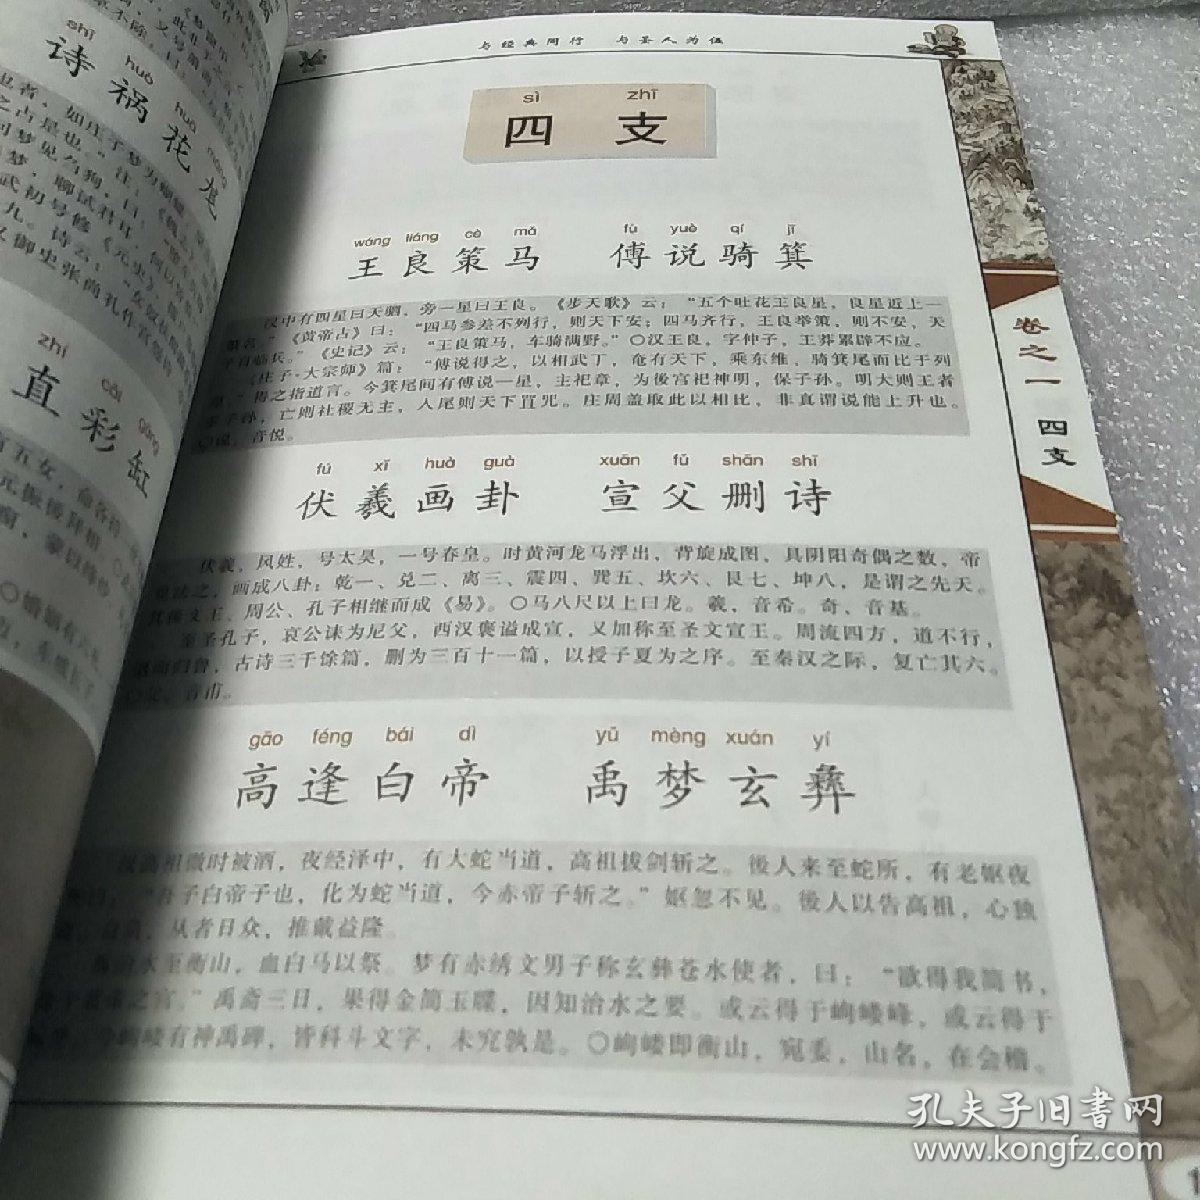 与经典同行 与圣人为伍
sì zhī
四 支
wáng liáng cè mǎ fù yuè qí jī
王良策马 傅说骑箕
汉中有四星曰天驷，旁一星曰王良。《步天歌》云：“五个吐花王良星，良星近上一
策名。”《黄帝占》曰：“四马参差不列行，则天下安；四马齐行，王良举策，则不安，天
子自临兵。”《史记》云：“王良策马，车骑满野。”○汉王良，字仲子，王莽累辟不应。
《庄子·大宗师》篇：“傅说得之，以相武丁，奄有天下，乘东维，骑箕尾而比于列
星。”得之指道言。今箕尾间有傅说一星，主祀章，为後宫祀神明，保子孙。明大则王者
多子孙，亡则社稷无主，入尾则天下罝咒。庄周盖取此以相比，非真谓说能上升也。
○说，音悦。
fú xī huà guà xuān fǔ shān shī
伏羲画卦 宣父删诗
伏羲，风姓，号太昊，一号春皇。时黄河龙马浮出，背旋成图，具阴阳奇偶之数，帝
则之，画成八卦：乾一、兑二、离三、震四、巽五、坎六、艮七、坤八，是谓之先天。
其後文王、周公、孔子相继而成《易》。○马八尺以上曰龙。羲，音希。奇、音基。
至圣孔子，哀公诔为尼父，西汉褒谥成宣，又加称至圣文宣王。周流四方，道不行，
退而归鲁，古诗三千馀篇，删为三百十一篇，以授子夏为之序。至秦汉之际，复亡其六。
○父、音甫。
gāo féng bái dì yǔ mèng xuán yí
高逢白帝 禹梦玄彝
汉高祖微时被酒，夜经泽中，有大蛇当道，高祖拔剑斩之。後人来至蛇所，有老妪夜
哭曰：“吾子白帝子也，化为蛇当道，今赤帝子斩之。”妪忽不见。後人以告高祖，心独
喜，自负，从者日众，推戴益隆。
禹治水至衡山，血白马以祭。梦有赤绣文男子称玄彝苍水使者，曰：“欲得我简书，
之宫。”禹斋三日，果得金简玉牒，因知治水之要。或云得于岣嵝峰，或云得于
岣嵝有神禹碑，皆科斗文字，未究孰是。○岣嵝即衡山，宛委，山名，在会稽。
卷之一 四支
shī huò huā
诗祸花尨
zhí cǎi gāng
直彩缸
孔夫子旧书网
www.kongfz.com